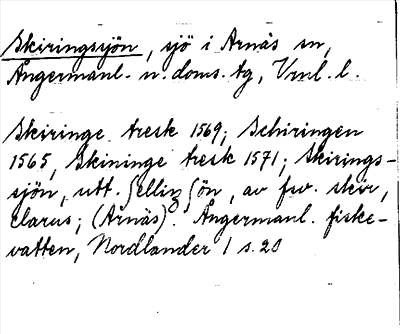 Skiringsjön, sjö i Arnäs sn,
Ångermanl. n. doms. tg, Vrnl. l.
Skiringe tresk 1569; Schiringen
1565, Skininge tresk 1571; Skirings-
sjön, utt. ʃelliŋʃön, av fsv. skir,
clarus; (Arnäs). Ångermanl. fiske-
vatten, Nordlander 1 s. 20